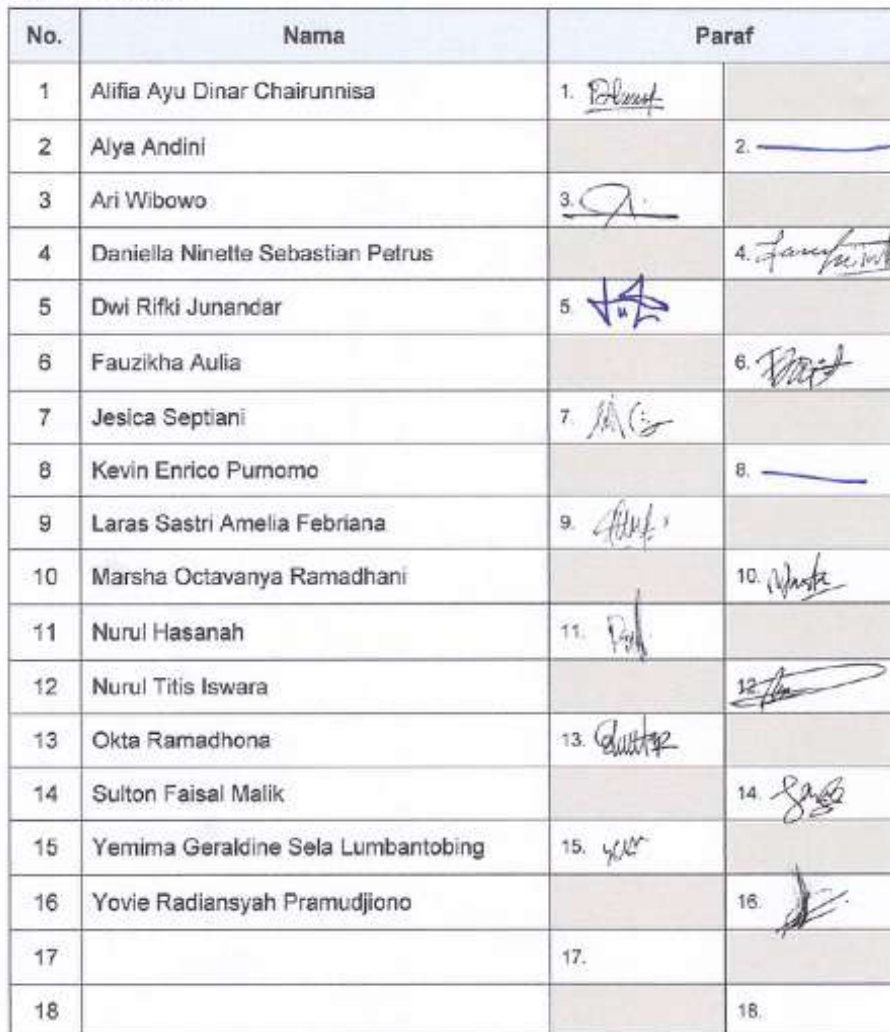 No. Nama Paraf
1 Alifia Ayu Dinar Chairunnisa 1.
2 Alya Andini 2.
3 Ari Wibowo 3.
4 Daniella Ninette Sebastian Petrus 4.
5 Dwi Rifki Junandar 5.
6 Fauzikha Aulia 6.
7 Jesica Septiani 7.
8 Kevin Enrico Purnomo 8.
9 Laras Sastri Amelia Febriana 9.
10 Marsha Octavanya Ramadhani 10.
11 Nurul Hasanah 11.
12 Nurul Titis Iswara 12.
13 Okta Ramadhona 13.
14 Sulton Faisal Malik 14.
15 Yemima Geraldine Sela Lumbantobing 15.
16 Yovie Radiansyah Pramudjiono 16.
17 17.
18 18.